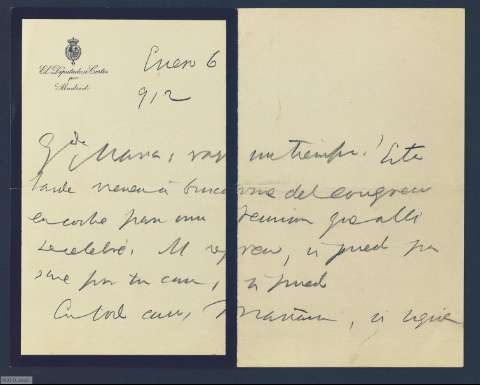 El Diputado a Cortes
por
Madrid
Enero 6
912
Qda María, vaya un tiempo! Esta
tarde vienen a buscarme del congreso
en coche para una reunion que alli
se celebre. Al regreso, si puedo pa
saré por tu casa, si puedo
En todo caso, Mañana, si sigue